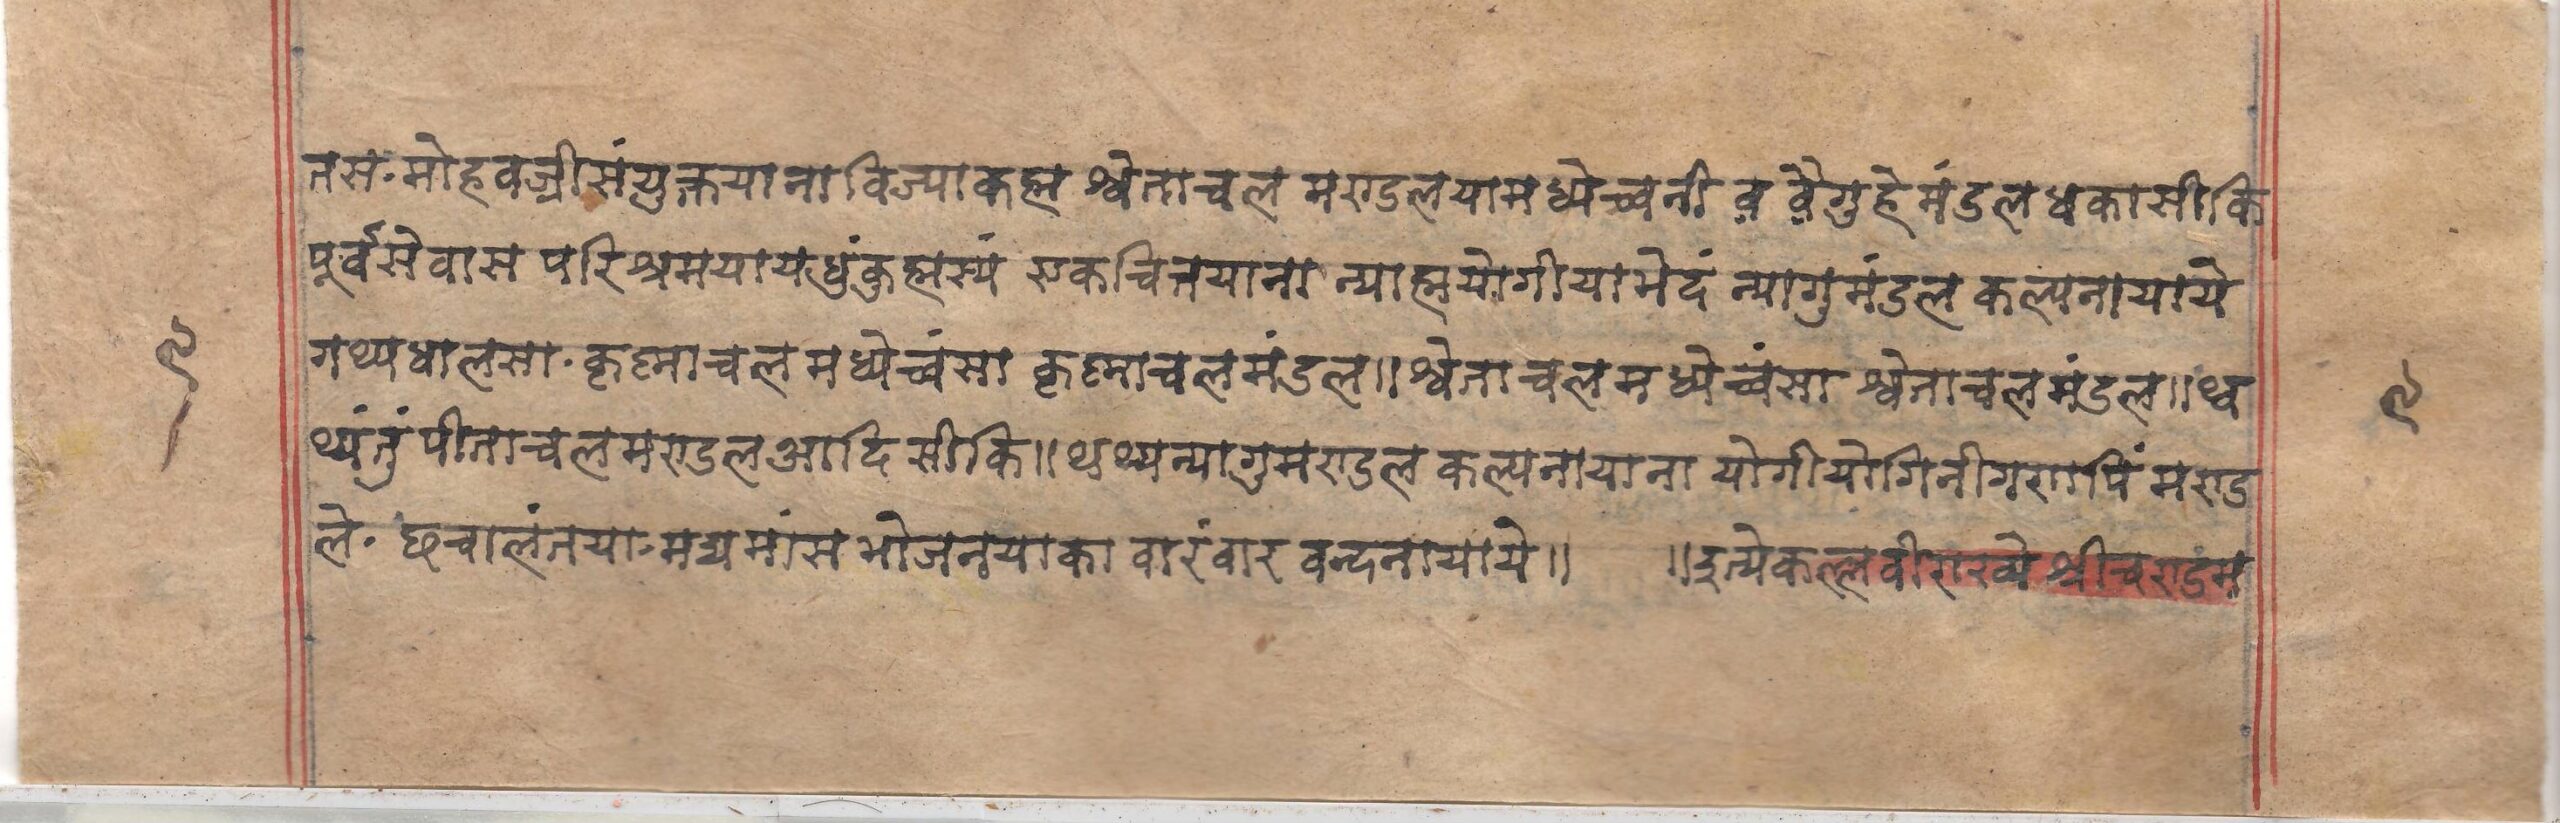 तस॰मोहवज्रीसंयुक्तयाना विज्याकह्म श्वेताचल मण्डलयामध्येच्वनी व वैगुहे मंडलधकासीकि
पूर्वसेवास परिश्रमयायधुंकुह्मस्यं एकचित्तयाना न्याह्मयोगीयाभेदं न्यागुमंडल कल्पनायाये
गथ्यधालसा॰कृष्णाचल मध्येच्वंसा कृष्णाचलमंडल॥श्वेताचलमध्येच्वंसा श्वेताचलमंडल॥थ्व
थ्यंतुं पीताचलमण्डलआदि सीकि॥थथ्यन्यागुमण्डल कल्पनायाना योगीयोगिनीगणपिं मण्ड
ले॰ छचालंतया॰मद्यमांस भोजनयाका वारंवार वन्दनायाये॥ ॥इत्येकल्लवीराख्ये श्रीचण्डम
९
९